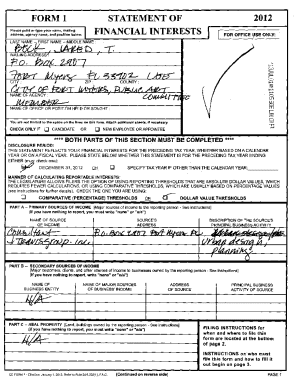 FORM 1 STATEMENT OF 2012
Please print or type your name, mailing address, agency name, and position below:
FINANCIAL INTERESTS
FOR OFFICE USE ONLY:
LAST NAME -- FIRST NAME -- MIDDLE NAME:
BECK, JARED, T.
MAILING ADDRESS:
P.O. BOX 2807
FORT MYERS FL 33902 LEE
CITY: ZIP: COUNTY:
CITY OF FORT MYERS, PUBLIC ART
NAME OF AGENCY:
COMMITTEE
MEMBER
NAME OF OFFICE OR POSITION HELD OR SOUGHT:
You are not limited to the space on the lines on this form. Attach additional sheets, if necessary.
CHECK ONLY IF CANDIDATE OR NEW EMPLOYEE OR APPOINTEE
**** BOTH PARTS OF THIS SECTION MUST BE COMPLETED ****
DISCLOSURE PERIOD:
THIS STATEMENT REFLECTS YOUR FINANCIAL INTERESTS FOR THE PRECEDING TAX YEAR, WHETHER BASED ON A CALENDAR
YEAR OR ON A FISCAL YEAR. PLEASE STATE BELOW WHETHER THIS STATEMENT IS FOR THE PRECEDING TAX YEAR ENDING
EITHER (must check one):
DECEMBER 31, 2012 OR SPECIFY TAX YEAR IF OTHER THAN THE CALENDAR YEAR:
MANNER OF CALCULATING REPORTABLE INTERESTS:
THE LEGISLATURE ALLOWS FILERS THE OPTION OF USING REPORTING THRESHOLDS THAT ARE ABSOLUTE DOLLAR VALUES, WHICH
REQUIRES FEWER CALCULATIONS, OR USING COMPARATIVE THRESHOLDS, WHICH ARE USUALLY BASED ON PERCENTAGE VALUES
(see instructions for further details). CHECK THE ONE YOU ARE USING:
COMPARATIVE (PERCENTAGE) THRESHOLDS OR DOLLAR VALUE THRESHOLDS
PART A -- PRIMARY SOURCES OF INCOME [Major sources of income to the reporting person - See instructions]
(If you have nothing to report, write "none" or "n/a")
NAME OF SOURCE OF INCOME SOURCE'S ADDRESS DESCRIPTION OF THE SOURCE'S PRINCIPAL BUSINESS ACTIVITY
P.O. Box 2807 Fort Myers FL
Group, Inc. urban design,
planning
PART B -- SECONDARY SOURCES OF INCOME
[Major customers, clients, and other sources of income to businesses owned by the reporting person - See instructions]
(If you have nothing to report, write "none" or "n/a")
NAME OF BUSINESS ENTITY NAME OF MAJOR SOURCES OF BUSINESS' INCOME ADDRESS OF SOURCE PRINCIPAL BUSINESS ACTIVITY OF SOURCE
N/A
PART C -- REAL PROPERTY [Land, buildings owned by the reporting person - See instructions]
(If you have nothing to report, write "none" or "n/a")
N/A
FILING INSTRUCTIONS for when and where to file this form are located at the bottom of page 2.
INSTRUCTIONS on who must file this form and how to fill it out begin on page 3.
(Continued on reverse side) PAGE 1